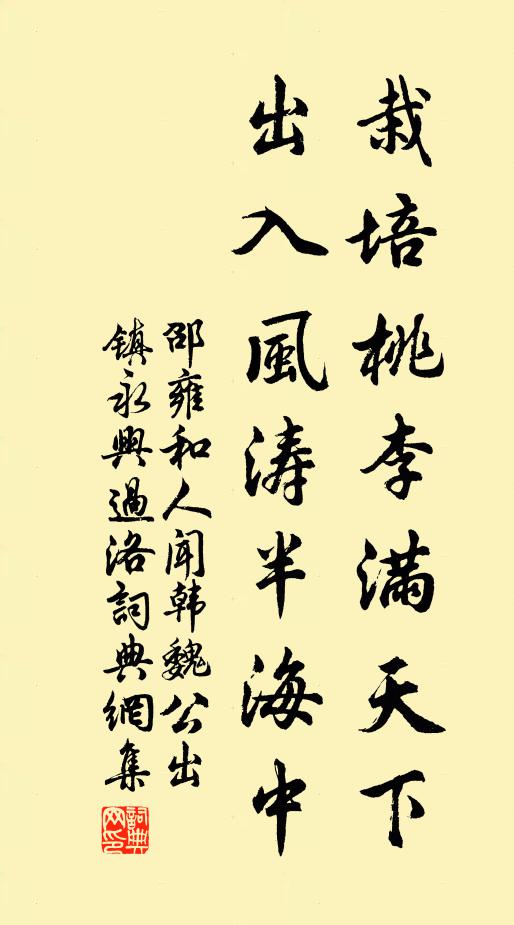 栽培桃李滿天下
出入風涛半海中
邵雍和人闻韩魏公出
镇永興過洛詞典網集
詞典
网印